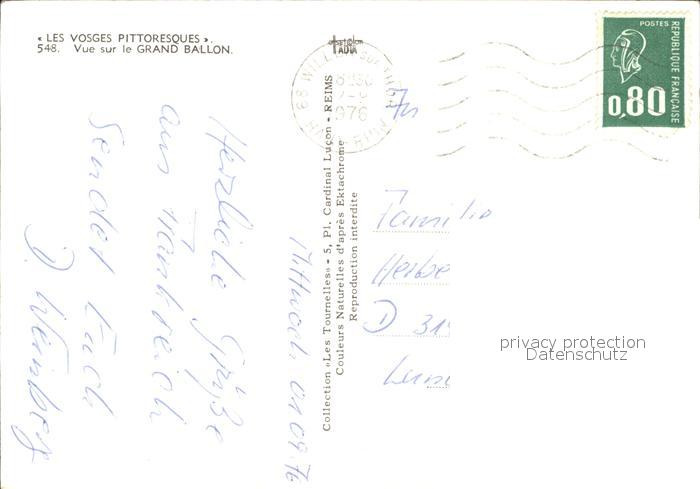 « LES VOSGES PITTORESQUES ».
548. Vue sur le GRAND BALLON.
POSTES
RÉPUBLIQUE FRANÇAISE
0,80
68 WILLER SUR THUR
HAUT RHIN
1976
Collection «Les Tournelles» - 5, Pl. Cardinal Luçon - REIMS
Couleurs Naturelles d'après Ektachrome
Reproduction interdite
Mittwoch 01 09 76
Herzliche Grüße
aus Frankreich
sendet Euch
Familie
D 31
privacy protection
Datenschutz